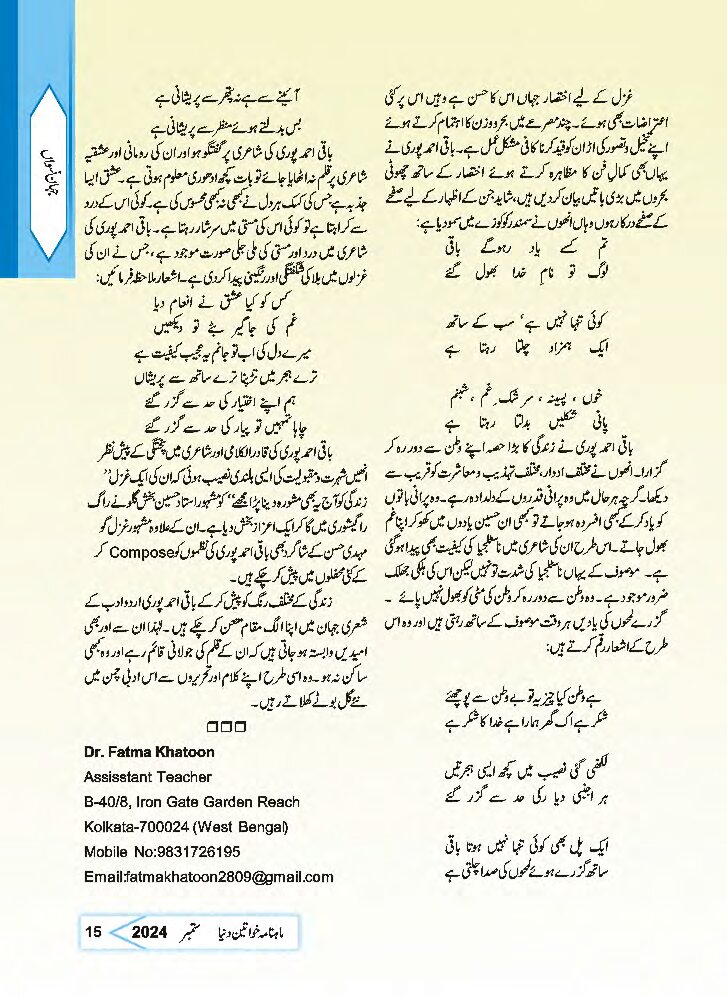 جہان نسواں
غزل کے لیے اختصار جہاں اس کا حسن ہے وہیں اس پر کئی
اعتراضات بھی ہوئے۔ چند مصرعے میں بحر و وزن کا اہتمام کرتے ہوئے
اپنے تخیل و تصور کی اڑان کو قید کرنا کافی مشکل عمل ہے۔ باقی احمد پوری نے
یہاں بھی کمال فن کا مظاہرہ کرتے ہوئے اختصار کے ساتھ چھوٹی
بحروں میں بڑی باتیں بیان کر دیں ہیں، شاید جن کے اظہار کے لیے صفحے
کے صفحے درکار ہوں وہاں انھوں نے سمندر کو کوزے میں سمو دیا ہے:
تم کسے یاد رہوگے باقی
لوگ تو نام خدا بھول گئے
کوئی تنہا نہیں ہے، سب کے ساتھ
ایک ہمزاد چلتا رہتا ہے
خوں ، پسینہ ، سرشک غم ، شبنم
پانی شکلیں بدلتا رہتا ہے
باقی احمد پوری نے زندگی کا بڑا حصہ اپنے وطن سے دور رہ کر
گزارا۔ انھوں نے مختلف ادوار، مختلف تہذیب و معاشرت کو قریب سے
دیکھا۔ گرچہ ہر حال میں وہ پرانی قدروں کے دلدادہ رہے۔ وہ پرانی باتوں
کو یاد کر کے کبھی افسردہ ہو جاتے تو کبھی ان حسین یادوں میں کھو کر اپنا غم
بھول جاتے۔ اس طرح ان کی شاعری میں ناسٹلجیا کی کیفیت بھی پیدا ہو گئی
ہے۔ موصوف کے یہاں ناسٹلجیا کی شدت تو نہیں لیکن اس کی ہلکی جھلک
ضرور موجود ہے۔ وہ وطن سے دور رہ کر وطن کی مٹی کو بھول نہیں پائے ۔
گزرے لمحوں کی یادیں ہر وقت موصوف کے ساتھ رہتی ہیں اور وہ اس
طرح کے اشعار رقم کرتے ہیں:
ہے وطن کیا چیز یہ تو بے وطن سے پوچھئے
شکر ہے اک گھر ہمارا ہے خدا کا شکر ہے
لکھی گئی نصیب میں کچھ ایسی ہجرتیں
ہر اجنبی دیار کی حد سے گزر گئے
ایک پل بھی کوئی تنہا نہیں ہوتا باقی
ساتھ گزرے ہوئے لمحوں کی صدا چلتی ہے
آئینے سے ہے نہ پتھر سے پریشانی ہے
بس بدلتے ہوئے منظر سے پریشانی ہے
باقی احمد پوری کی شاعری پر گفتگو ہو اور ان کی رومانی اور عشقیہ
شاعری پر قلم نہ اٹھایا جائے تو بات کچھ ادھوری معلوم ہوتی ہے۔ عشق ایسا
جذبہ ہے جس کی کسک ہر دل نے کبھی نہ کبھی محسوس کی ہے۔ کوئی اس کے درد
سے کراہتا ہے تو کوئی اس کی مستی میں سرشار رہتا ہے۔ باقی احمد پوری کی
شاعری میں درد اور مستی کی ملی جلی صورت موجود ہے، جس نے ان کی
غزلوں میں بلا کی شگفتگی اور رنگینی پیدا کر دی ہے۔ اشعار ملاحظہ فرمائیں:
کس کو کیا عشق نے انعام دیا
غم کی جاگیر بٹے تو دیکھیں
میرے دل کی اب تو جانم یہ عجیب کیفیت ہے
ترے ہجر میں تڑپنا ترے ساتھ سے پریشاں
ہم اپنے اختیار کی حد سے گزر گئے
چاہا تمہیں تو پیار کی حد سے گزر گئے
باقی احمد پوری کی قادر الکلامی اور شاعری میں پختگی کے پیش نظر
انھیں شہرت و مقبولیت کی ایسی بلندی نصیب ہوئی کہ ان کی ایک غزل "
زندگی کو آج یہ بھی مشورہ دینا پڑا مجھے" کو مشہور استاد حسین بخش گلو نے راگ
راگیشوری میں گا کر ایک اعزاز بخش دیا ہے۔ ان کے علاوہ مشہور غزل گو
مہدی حسن کے شاگرد بھی باقی احمد پوری کی نظموں کو Compose کر
کے کئی محفلوں میں پیش کر چکے ہیں۔
زندگی کے مختلف رنگ کو پیش کر کے باقی احمد پوری اردو ادب کے
شعری جہان میں اپنا الگ مقام متعین کر چکے ہیں ۔ لہٰذا ان سے اور بھی
امیدیں وابستہ ہو جاتی ہیں کہ ان کے قلم کی جولانی قائم رہے اور وہ کبھی
ساکن نہ ہو۔ وہ اسی طرح اپنے کلام اور تحریروں سے اس ادبی چمن میں
نئے گل بوٹے کھلاتے رہیں۔
□□□
Dr. Fatma Khatoon
Assisstant Teacher
B-40/8, Iron Gate Garden Reach
Kolkata-700024 (West Bengal)
Mobile No:9831726195
Email:fatmakhatoon2809@gmail.com
ماہنامہ خواتین دنیا ستمبر 2024 15